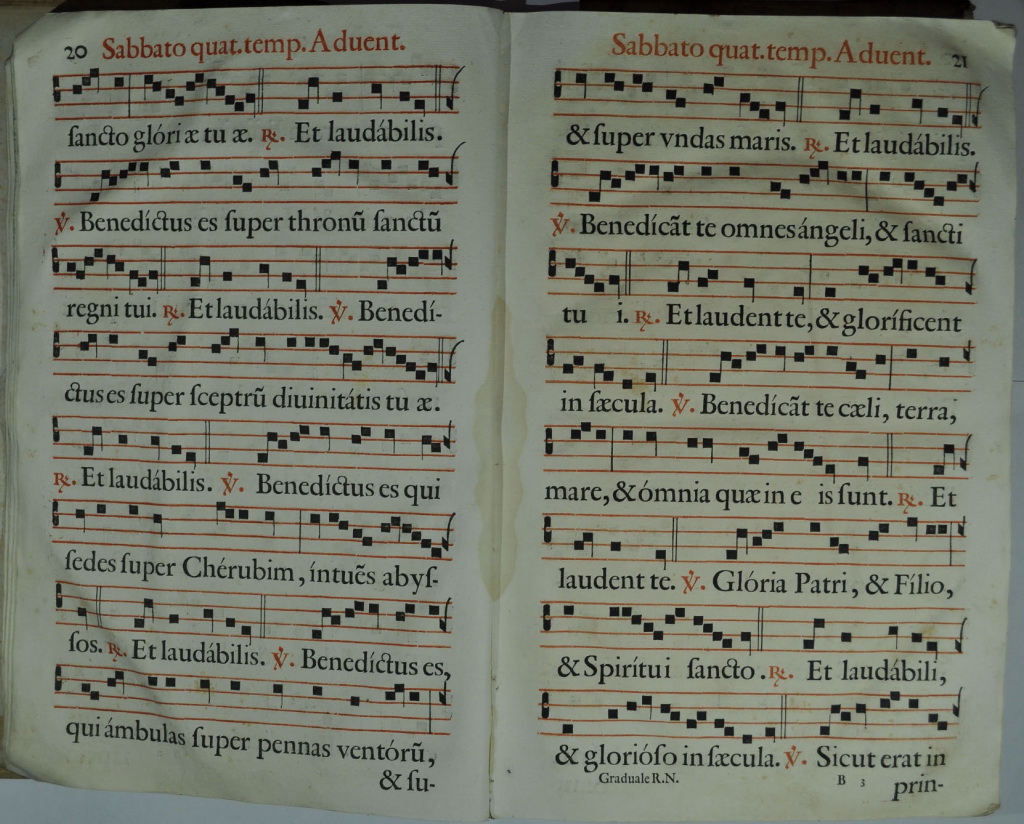 20 Sabbato quat.temp. Aduent.
ſancto glóriæ tuæ. ℟. Et laudábilis.
℣. Benedíctus es ſuper thronũ ſanctũ
regni tui. ℟. Et laudábilis. ℣. Benedí-
ctus es ſuper ſceptrũ diuinitátis tuæ.
℟. Et laudábilis. ℣. Benedíctus es qui
ſedes ſuper Chérubim, íntuẽs abyſ-
ſos. ℟. Et laudábilis. ℣. Benedíctus es,
qui ámbulas ſuper pennas ventórũ,
& ſu-
Sabbato quat.temp. Aduent. 21
& ſuper vndas maris. ℟. Et laudábilis.
℣. Benedícãt te omnes ángeli, & ſancti
tui. ℟. Et laudent te, & gloríficent
in ſæcula. ℣. Benedícãt te cæli, terra,
mare, & ómnia quæ in eis ſunt. ℟. Et
laudent te. ℣. Glória Patri, & Fílio,
& Spirítui ſancto. ℟. Et laudábili,
& glorióſo in ſæcula. ℣. Sicut erat in
Graduale R.N. B 3 prin-